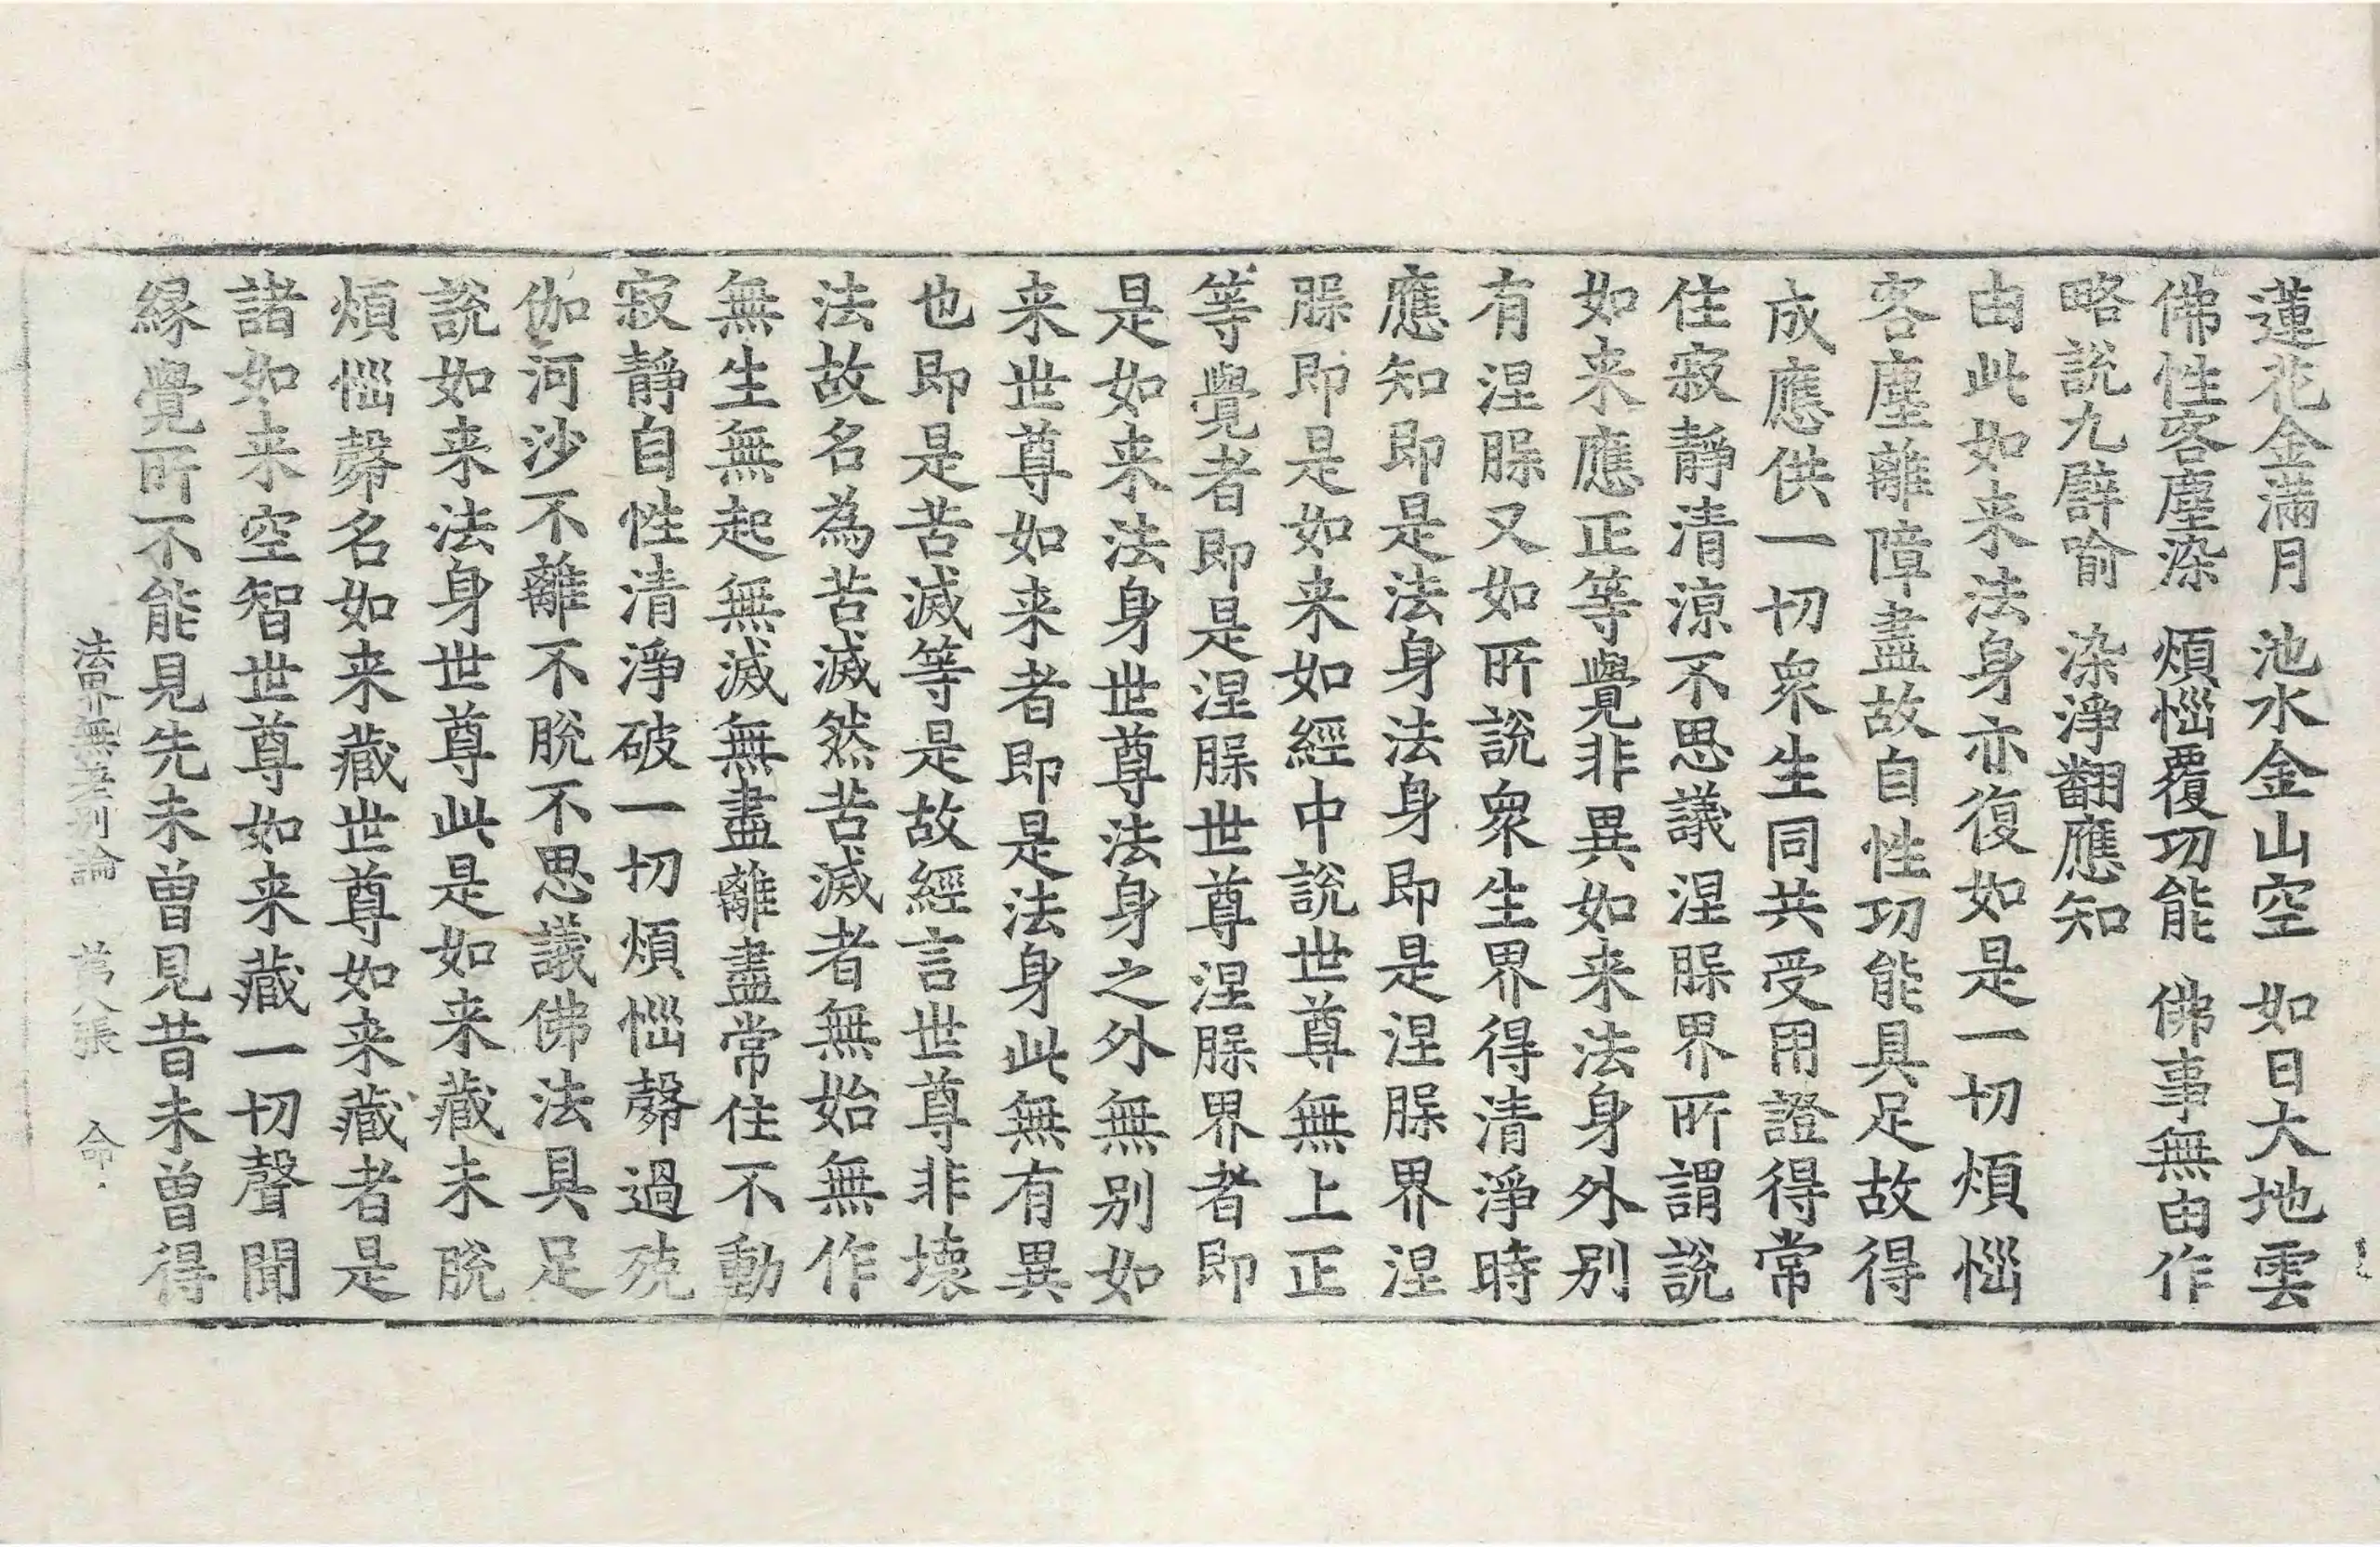 蓮花金滿月　池水金山空　如日大地雲
佛性客塵染　煩惱覆功能　佛事無由作
略說九譬喻　染淨翻應知
由此如来法身亦復如是一切煩惱
客塵離障盡故自性功能具足故得
成應供一切衆生同共受用證得常
住寂靜清涼不思議涅腺界所謂說
如来應正等覺非異如来法身外别
有涅腺又如所說衆生界得清淨時
應知即是法身法身即是涅腺界涅
腺即是如来如經中說世尊無上正
等覺者即是涅腺世尊涅腺界者即
是如来法身世尊法身之外無别如
来世尊如来者即是法身此無有異
也即是苦滅等是故經言世尊非壞
法故名為苦滅然苦滅者無始無作
無生無起無滅無盡離盡常住不動
寂靜自性清淨破一切煩惱㲉過殑
伽河沙不離不脫不思議佛法具足
說如来法身世尊此是如来藏未脫
煩惱㲉名如来藏世尊如来藏者是
諸如来空智世尊如来藏一切聲聞
緣覺所不能見先未曾見昔未曾得
法界無差别論　第八張　命